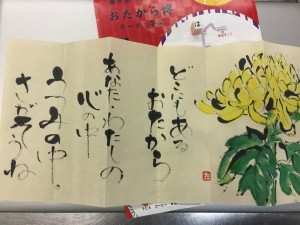 おたから博
どこにもある
おたから
あなたとわたしの
心の中
うつみの中、
さがそうね
た